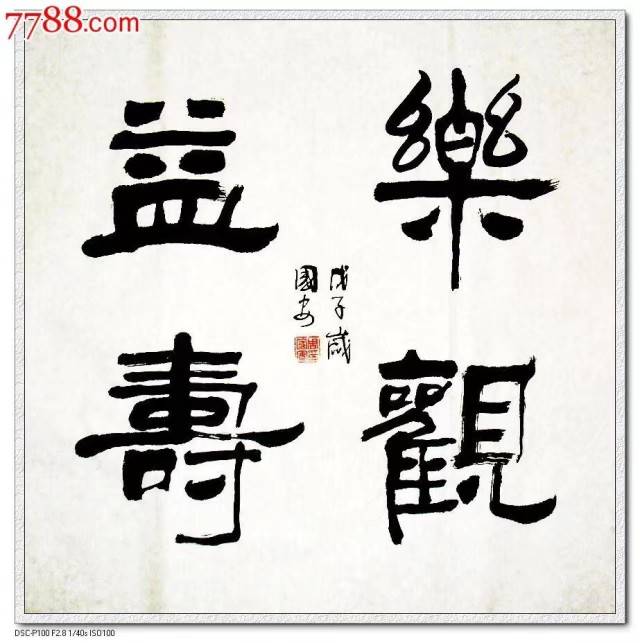 7788.com
樂觀
益壽
戊子歲
國安
DSC-P100 F2.8 1/40s ISO100